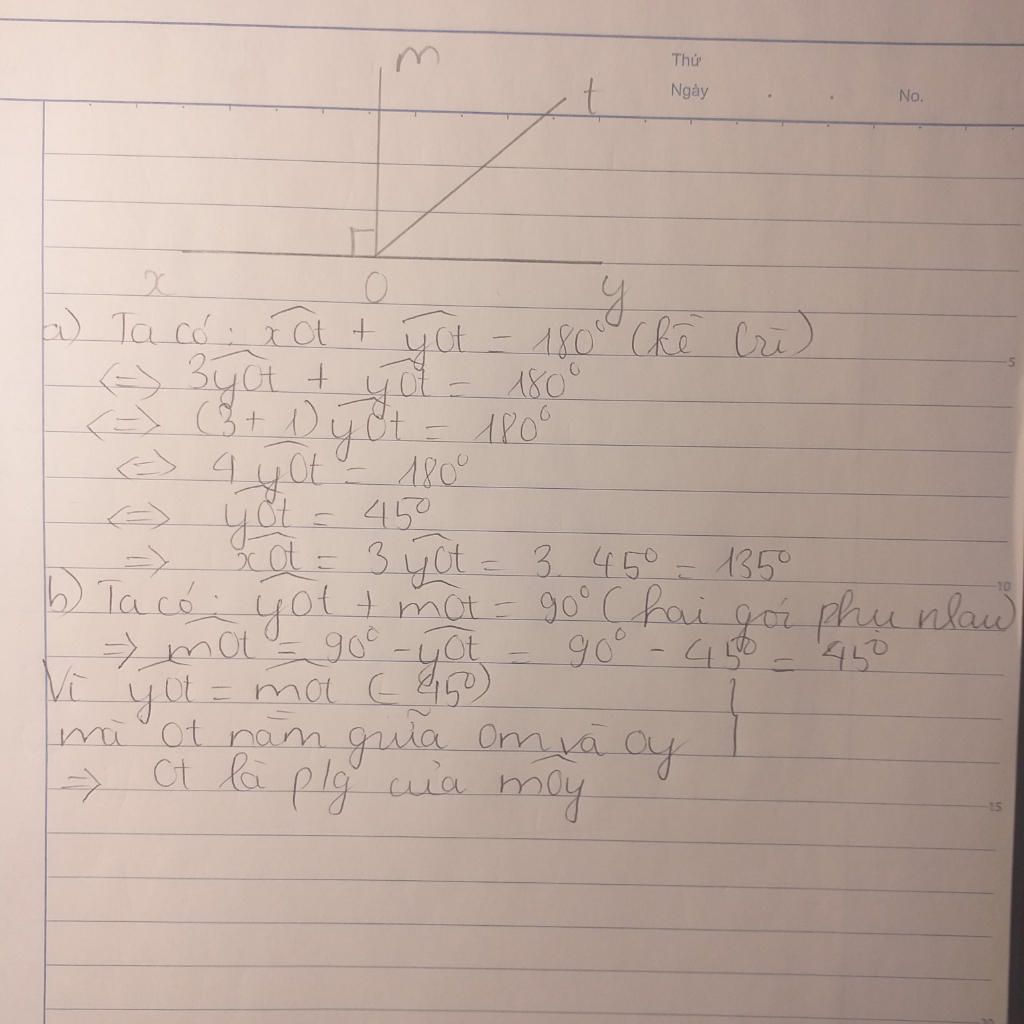 m
Thứ
t
Ngày
No.
x
O
y
a) Ta có: xOt + yOt = 180° (kề bù)
5
<=> 3yOt + yOt = 180°
<=> (3 + 1) yOt = 180°
<=> 4 yOt = 180°
<=> yOt = 45°
=> xOt = 3 yOt = 3. 45° = 135°
10
b) Ta có: yOt + mOt = 90° (hai gói phụ nhau)
=> mOt = 90° - yOt = 90° - 45° = 45°
Vì yOt = mOt (= 45°)
mà Ot nằm giữa Om và Oy
=> Ot là p/g của mOy
15